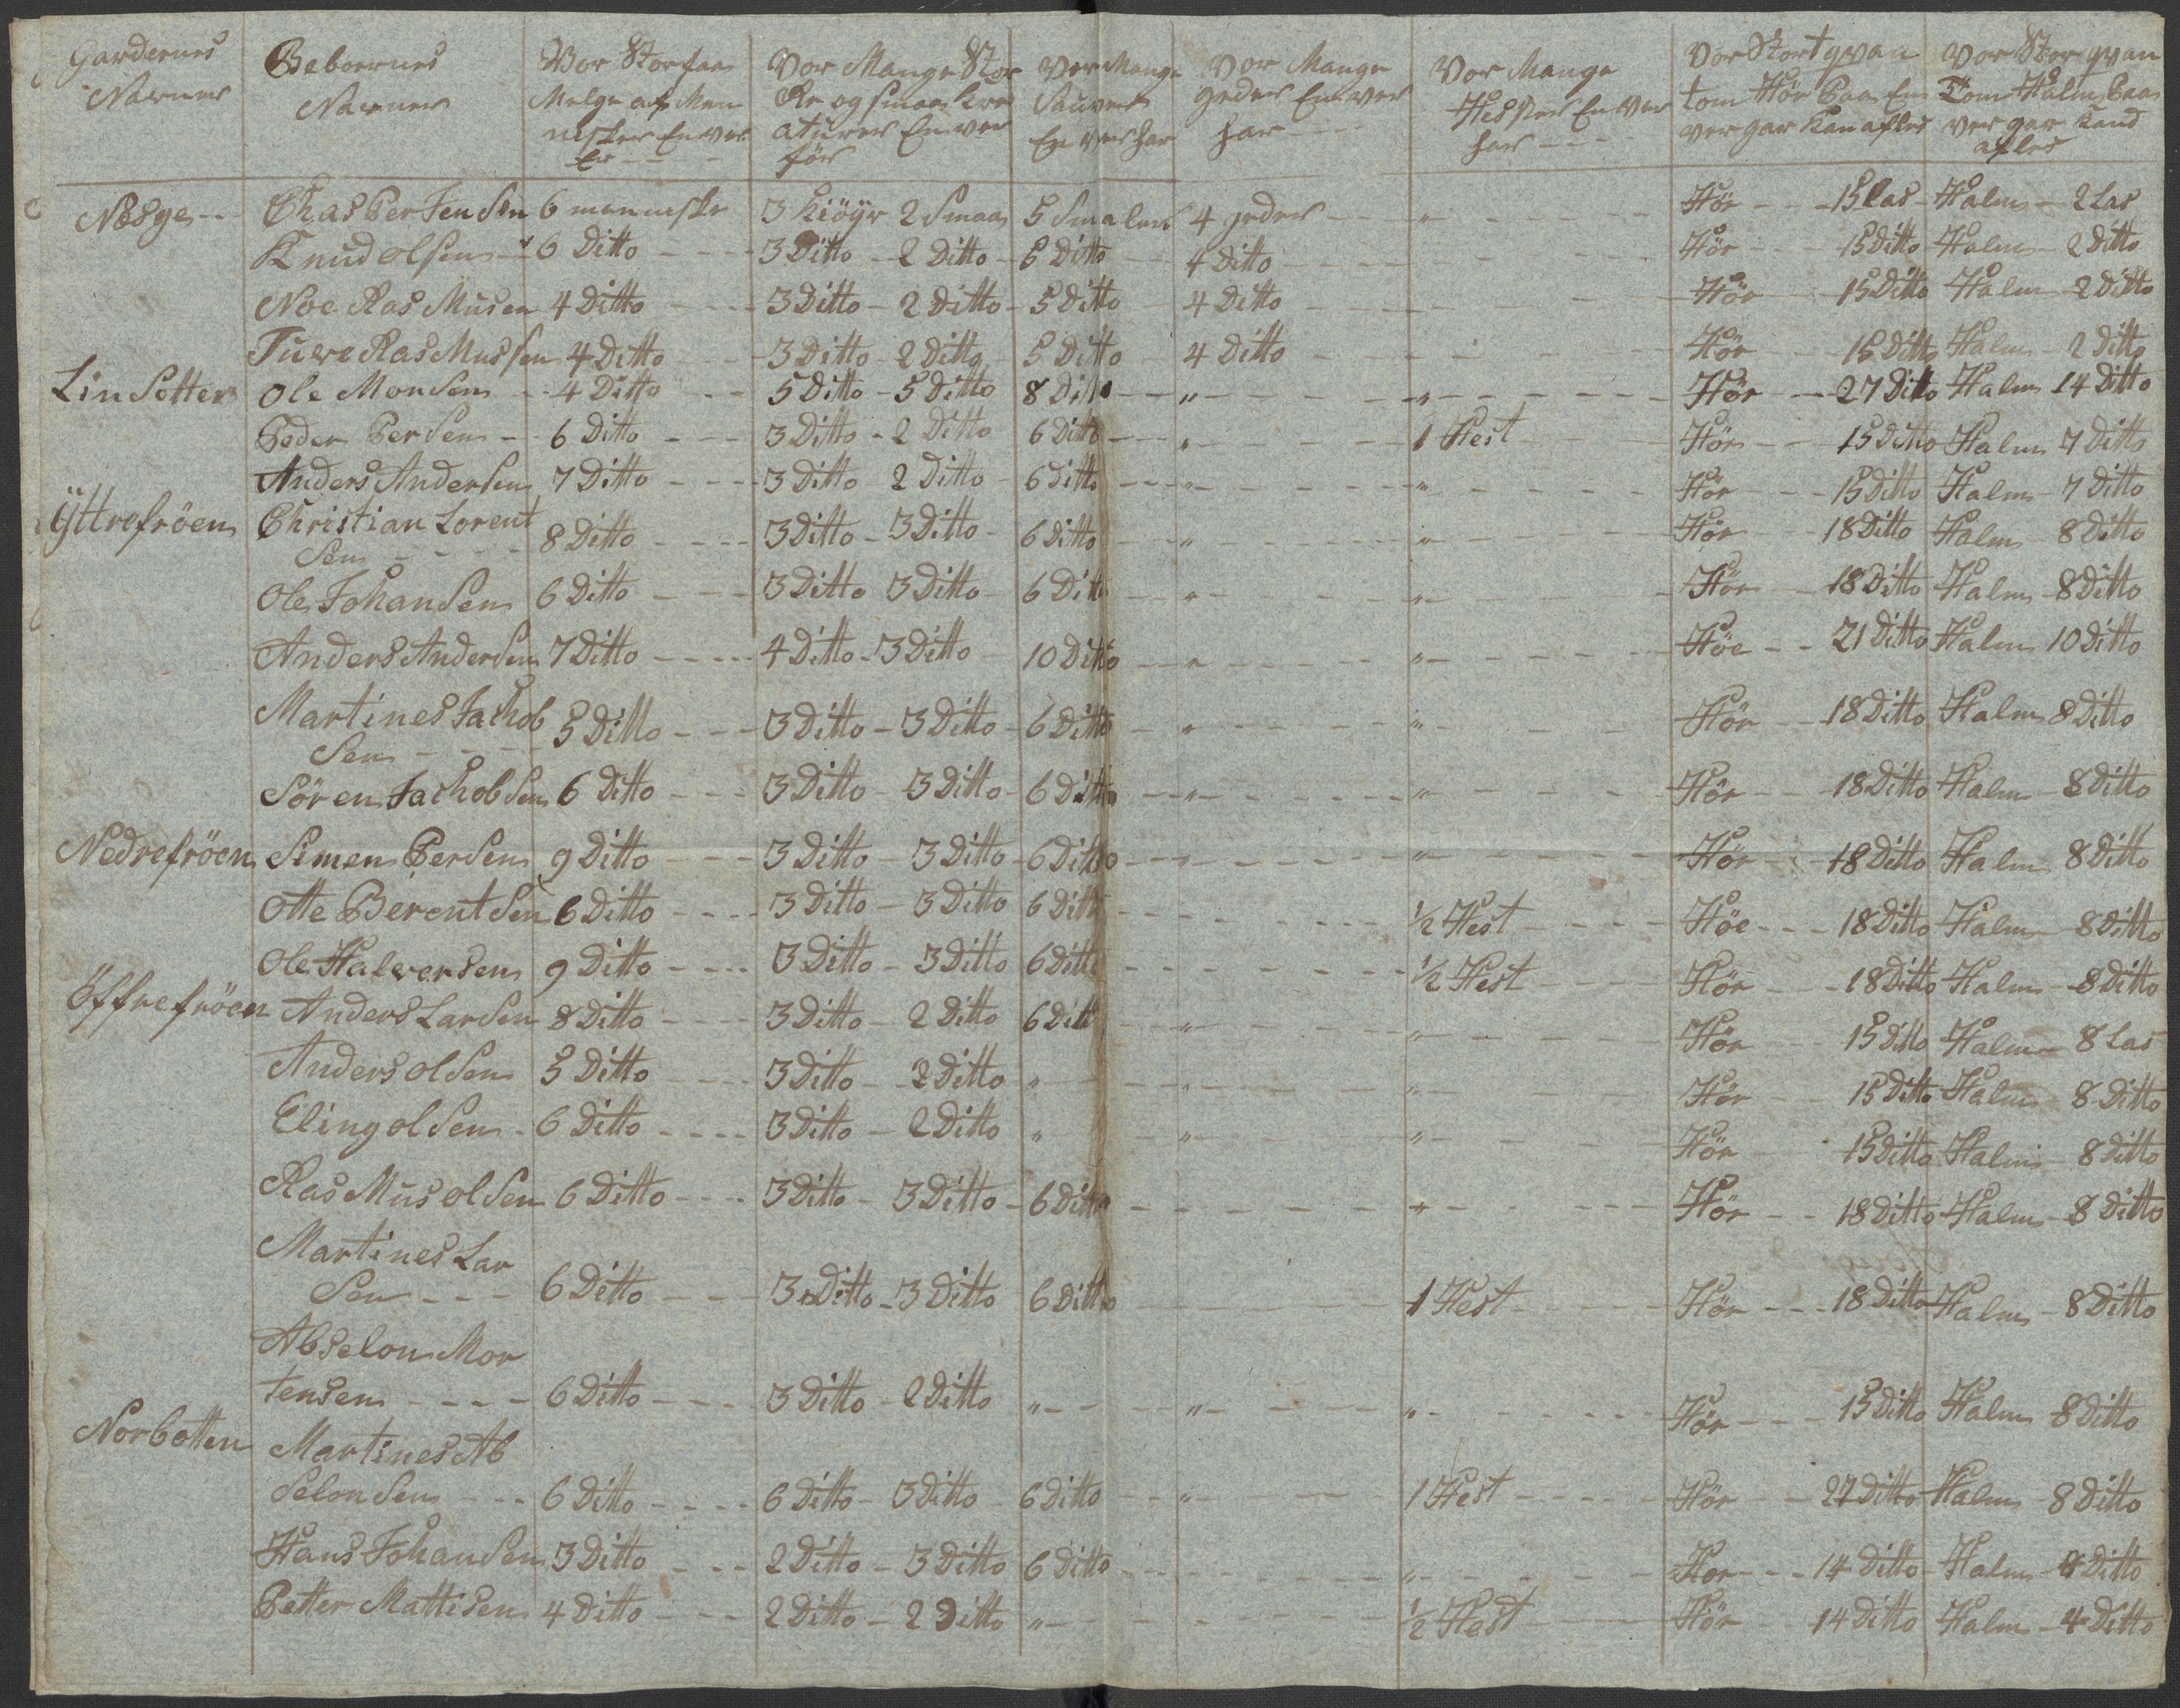 Gardernes Navner | Beboernes Navner | Vor Stor faa Melge af Men nisker En ver Er - - - | Vor Mange Stor Re og smaa kre aturer En ver för | Vor Mange Sauver En ver har | Vor Mange geder En ver har - - - | Vor Mange Hester En ver har - - - | Vor Stort qvan tom Hör Paa En ver gar kan afles | Vor Stor qvan Tom Halm Paa ver gar kand afles
Næsge - - | Chas Per Jensen | 6 menniske | 3 kiöÿr 2 Smaa | 5 Smaler | 4 geder | „ | Hör 15 las | Halm 2 Las
Knud olsen | 6 Ditto | 3 Ditto - 2 Ditto | 5 Ditto | 4 Ditto | Hör 15 Ditto | Halm 2 Ditto
Noe Ras Musen | 4 Ditto | 3 Ditto - 2 Ditto | 5 Ditto | 4 Ditto | Hör 15 Ditto | Halm 2 Ditto
Tuve Ras Mussen | 4 Ditto | 3 Ditto - 2 Ditto | 5 Ditto | 4 Ditto | Hör 15 Ditto | Halm 2 Ditto
Lin Setter | Ole Monsen | 4 Ditto | 5 Ditto - 5 Ditto | 8 Ditto | „ | „ | Hör 27 Ditto | Halm 14 Ditto
Peder Persen | 6 Ditto | 3 Ditto - 2 Ditto | 6 Ditto | „ | 1 Hest | Hör 15 Ditto | Halm 7 Ditto
Anders Andersen | 7 Ditto | 3 Ditto 2 Ditto | 6 Ditto | „ | „ | Hör 15 Ditto | Halm 7 Ditto
Ÿttrefröen | Christian Lorent
Sen | 8 Ditto | 3 Ditto - 3 Ditto | 6 Ditto | „ | „ | Hör 18 Ditto | Halm 8 Ditto
Ole Johansen | 6 Ditto | 3 Ditto 3 Ditto | 6 Ditto | „ | „ | Hör 18 Ditto | Halm 8 Ditto
Anders Andersen | 7 Ditto | 4 Ditto - 3 Ditto | 10 Ditto | „ | „ | Höe 21 Ditto | Halm 10 Ditto
Martines Jachob
Sen | 5 Ditto | 3 Ditto - 3 Ditto | 6 Ditto | „ | „ | Hör 18 Ditto | Halm 8 Ditto
Sören Jachobsen | 6 Ditto | 3 Ditto - 3 Ditto | 6 Ditto | „ | „ | Hör 18 Ditto | Halm 8 Ditto
Nedrefröen | Simen Persen | 9 Ditto | 3 Ditto - 3 Ditto | 6 Ditto | „ | „ | Hör 18 Ditto | Halm 8 Ditto
Otte Berentsen | 6 Ditto | 3 Ditto - 3 Ditto | 6 Ditto | 1/2 Hest | Höe 18 Ditto | Halm 8 Ditto
Ole Halversen | 9 Ditto | 3 Ditto - 3 Ditto | 6 Ditto | 1/2 Hest | Hör 18 Ditto | Halm 8 Ditto
Öffrefröen | Anders Larsen | 8 Ditto | 3 Ditto - 2 Ditto | 6 Ditto | „ | „ | Hör 15 Ditto | Halm 8 Las
Anders olsen | 5 Ditto | 3 Ditto - 2 Ditto | „ | „ | „ | Hör 15 Ditto | Halm 8 Ditto
Eling olsen | 6 Ditto | 3 Ditto - 2 Ditto | „ | „ | „ | Hör 15 Ditto | Halm 8 Ditto
Ras Mus olsen | 6 Ditto | 3 Ditto - 3 Ditto | 6 Ditto | „ | Hör 18 Ditto | Halm 8 Ditto
Martines Lar
Sen | 6 Ditto | 3 Ditto - 3 Ditto | 6 Ditto | 1 Hest | Hör 18 Ditto | Halm 8 Ditto
Abselon Mor
tensen | 6 Ditto | 3 Ditto - 2 Ditto | „ | „ | „ | Hör 15 Ditto | Halm 8 Ditto
Norbotten | Martines Ab
Selonsen | 6 Ditto | 6 Ditto - 3 Ditto | 6 Ditto | „ | 1 Hest | Hör 27 Ditto | Halm 8 Ditto
Hans Johansen | 3 Ditto | 2 Ditto - 3 Ditto | 6 Ditto | „ | Hör 14 Ditto | Halm 4 Ditto
Petter Mattisen | 4 Ditto | 2 Ditto - 2 Ditto | „ | 1/2 Hest | Hör 14 Ditto | Halm 4 Ditto